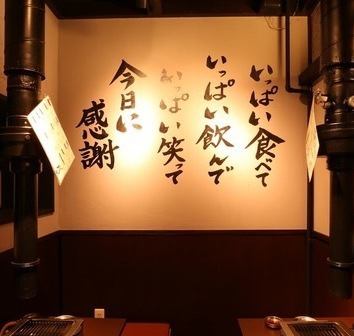 いっぱい食べて
いっぱい飲んで
いっぱい笑って
今日に
感謝